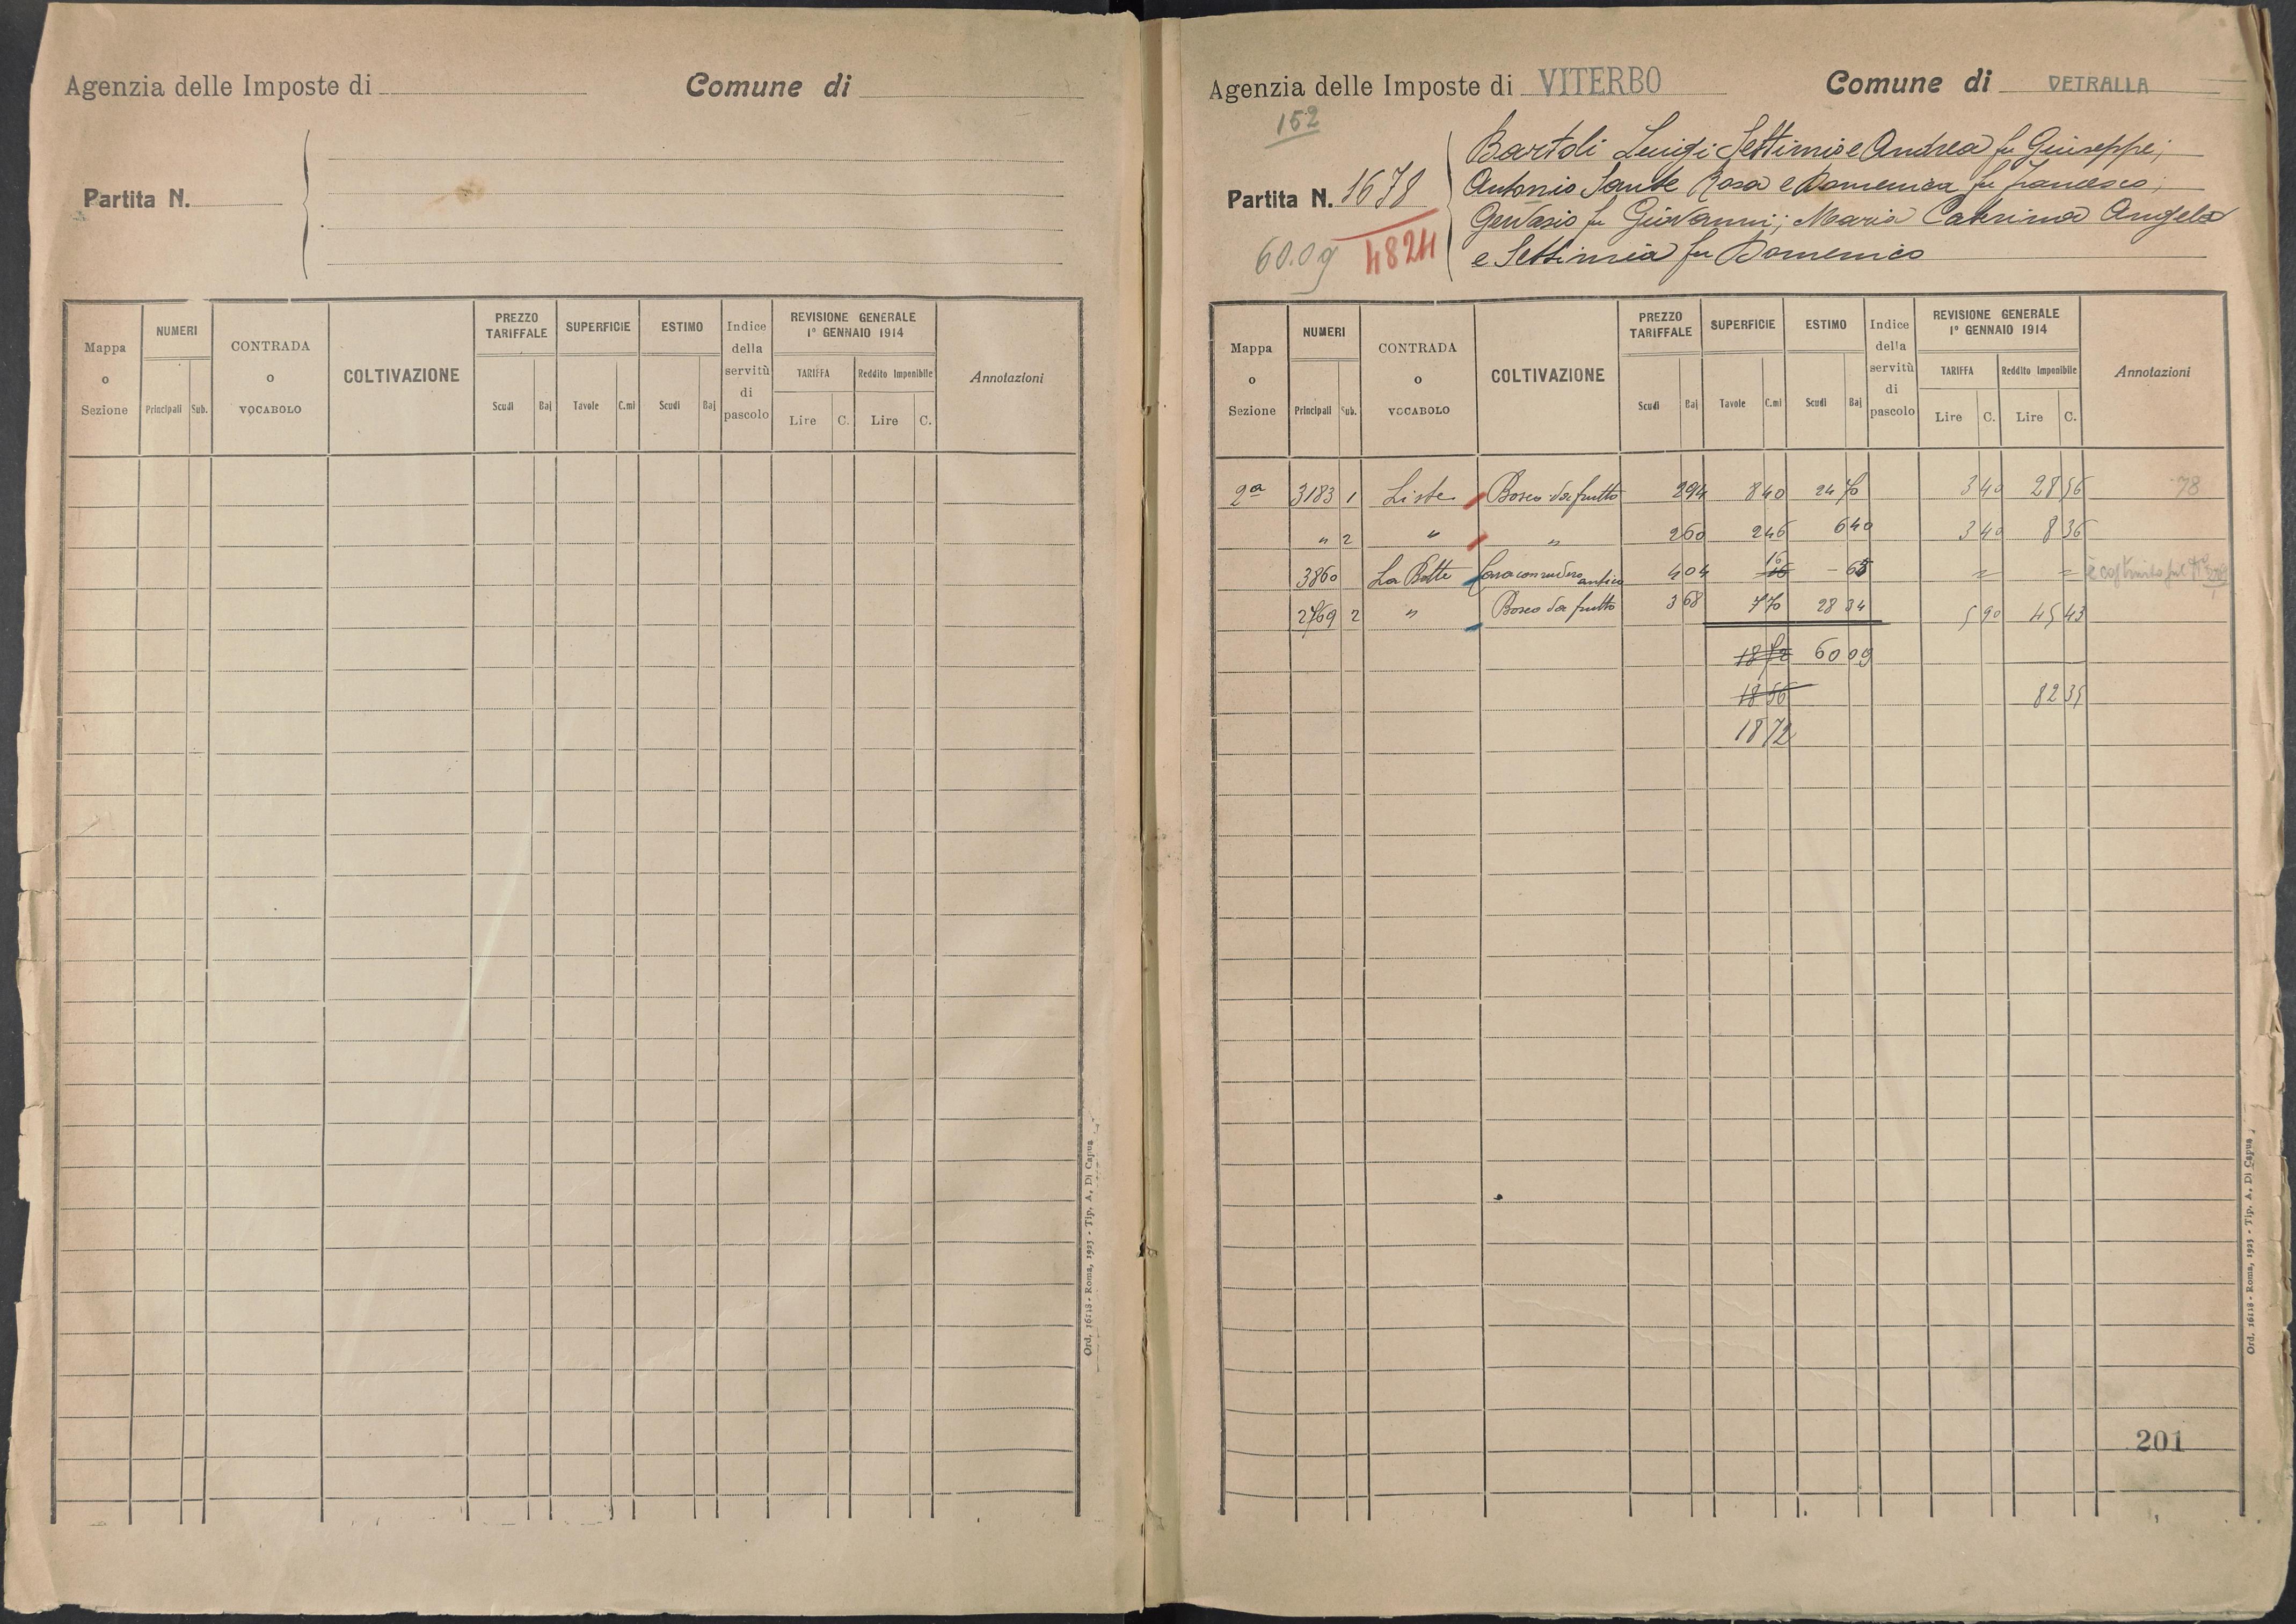 Agenzia delle Imposte di Comune di
Partita N.
Mappa o Sezione NUMERI Principali Sub. CONTRADA o VOCABOLO COLTIVAZIONE PREZZO TARIFFALE Scudi Baj SUPERFICIE Tavole C.mi ESTIMO Scudi Baj Indice della servitù di pascolo REVISIONE GENERALE 1° GENNAIO 1914 TARIFFA Lire C. Reddito Imponibile Lire C. Annotazioni
Ord. 16118 - Roma, 1923 - Tip. A. Di Capua
Agenzia delle Imposte di VITERBO Comune di VETRALLA
152
Bartoli Luigi Settimio e Andrea fu Giuseppe;
Partita N. 1678 Antonio Sante Rosa e Domenica fu Francesco;
Gervasio fu Giovanni; Maria Caterina Angela
60.09 4824 e Settimia fu Domenico
Mappa o Sezione NUMERI Principali Sub. CONTRADA o VOCABOLO COLTIVAZIONE PREZZO TARIFFALE Scudi Baj SUPERFICIE Tavole C.mi ESTIMO Scudi Baj Indice della servitù di pascolo REVISIONE GENERALE 1° GENNAIO 1914 TARIFFA Lire C. Reddito Imponibile Lire C. Annotazioni
2a 3183 1 Liste Bosco da frutto 2 94 8 40 24 70 3 40 28 56 78
" 2 " " 2 60 2 46 6 40 3 40 8 36
3860 La Botte antico 4 04 16 - 65 = = è costruito sul
2769 2 " Bosco da frutto 3 68 7 70 28 34 5 90 45 43
18 72 60 09
18 56 82 35
18 72
201
Ord. 16118 - Roma, 1923 - Tip. A. Di Capua